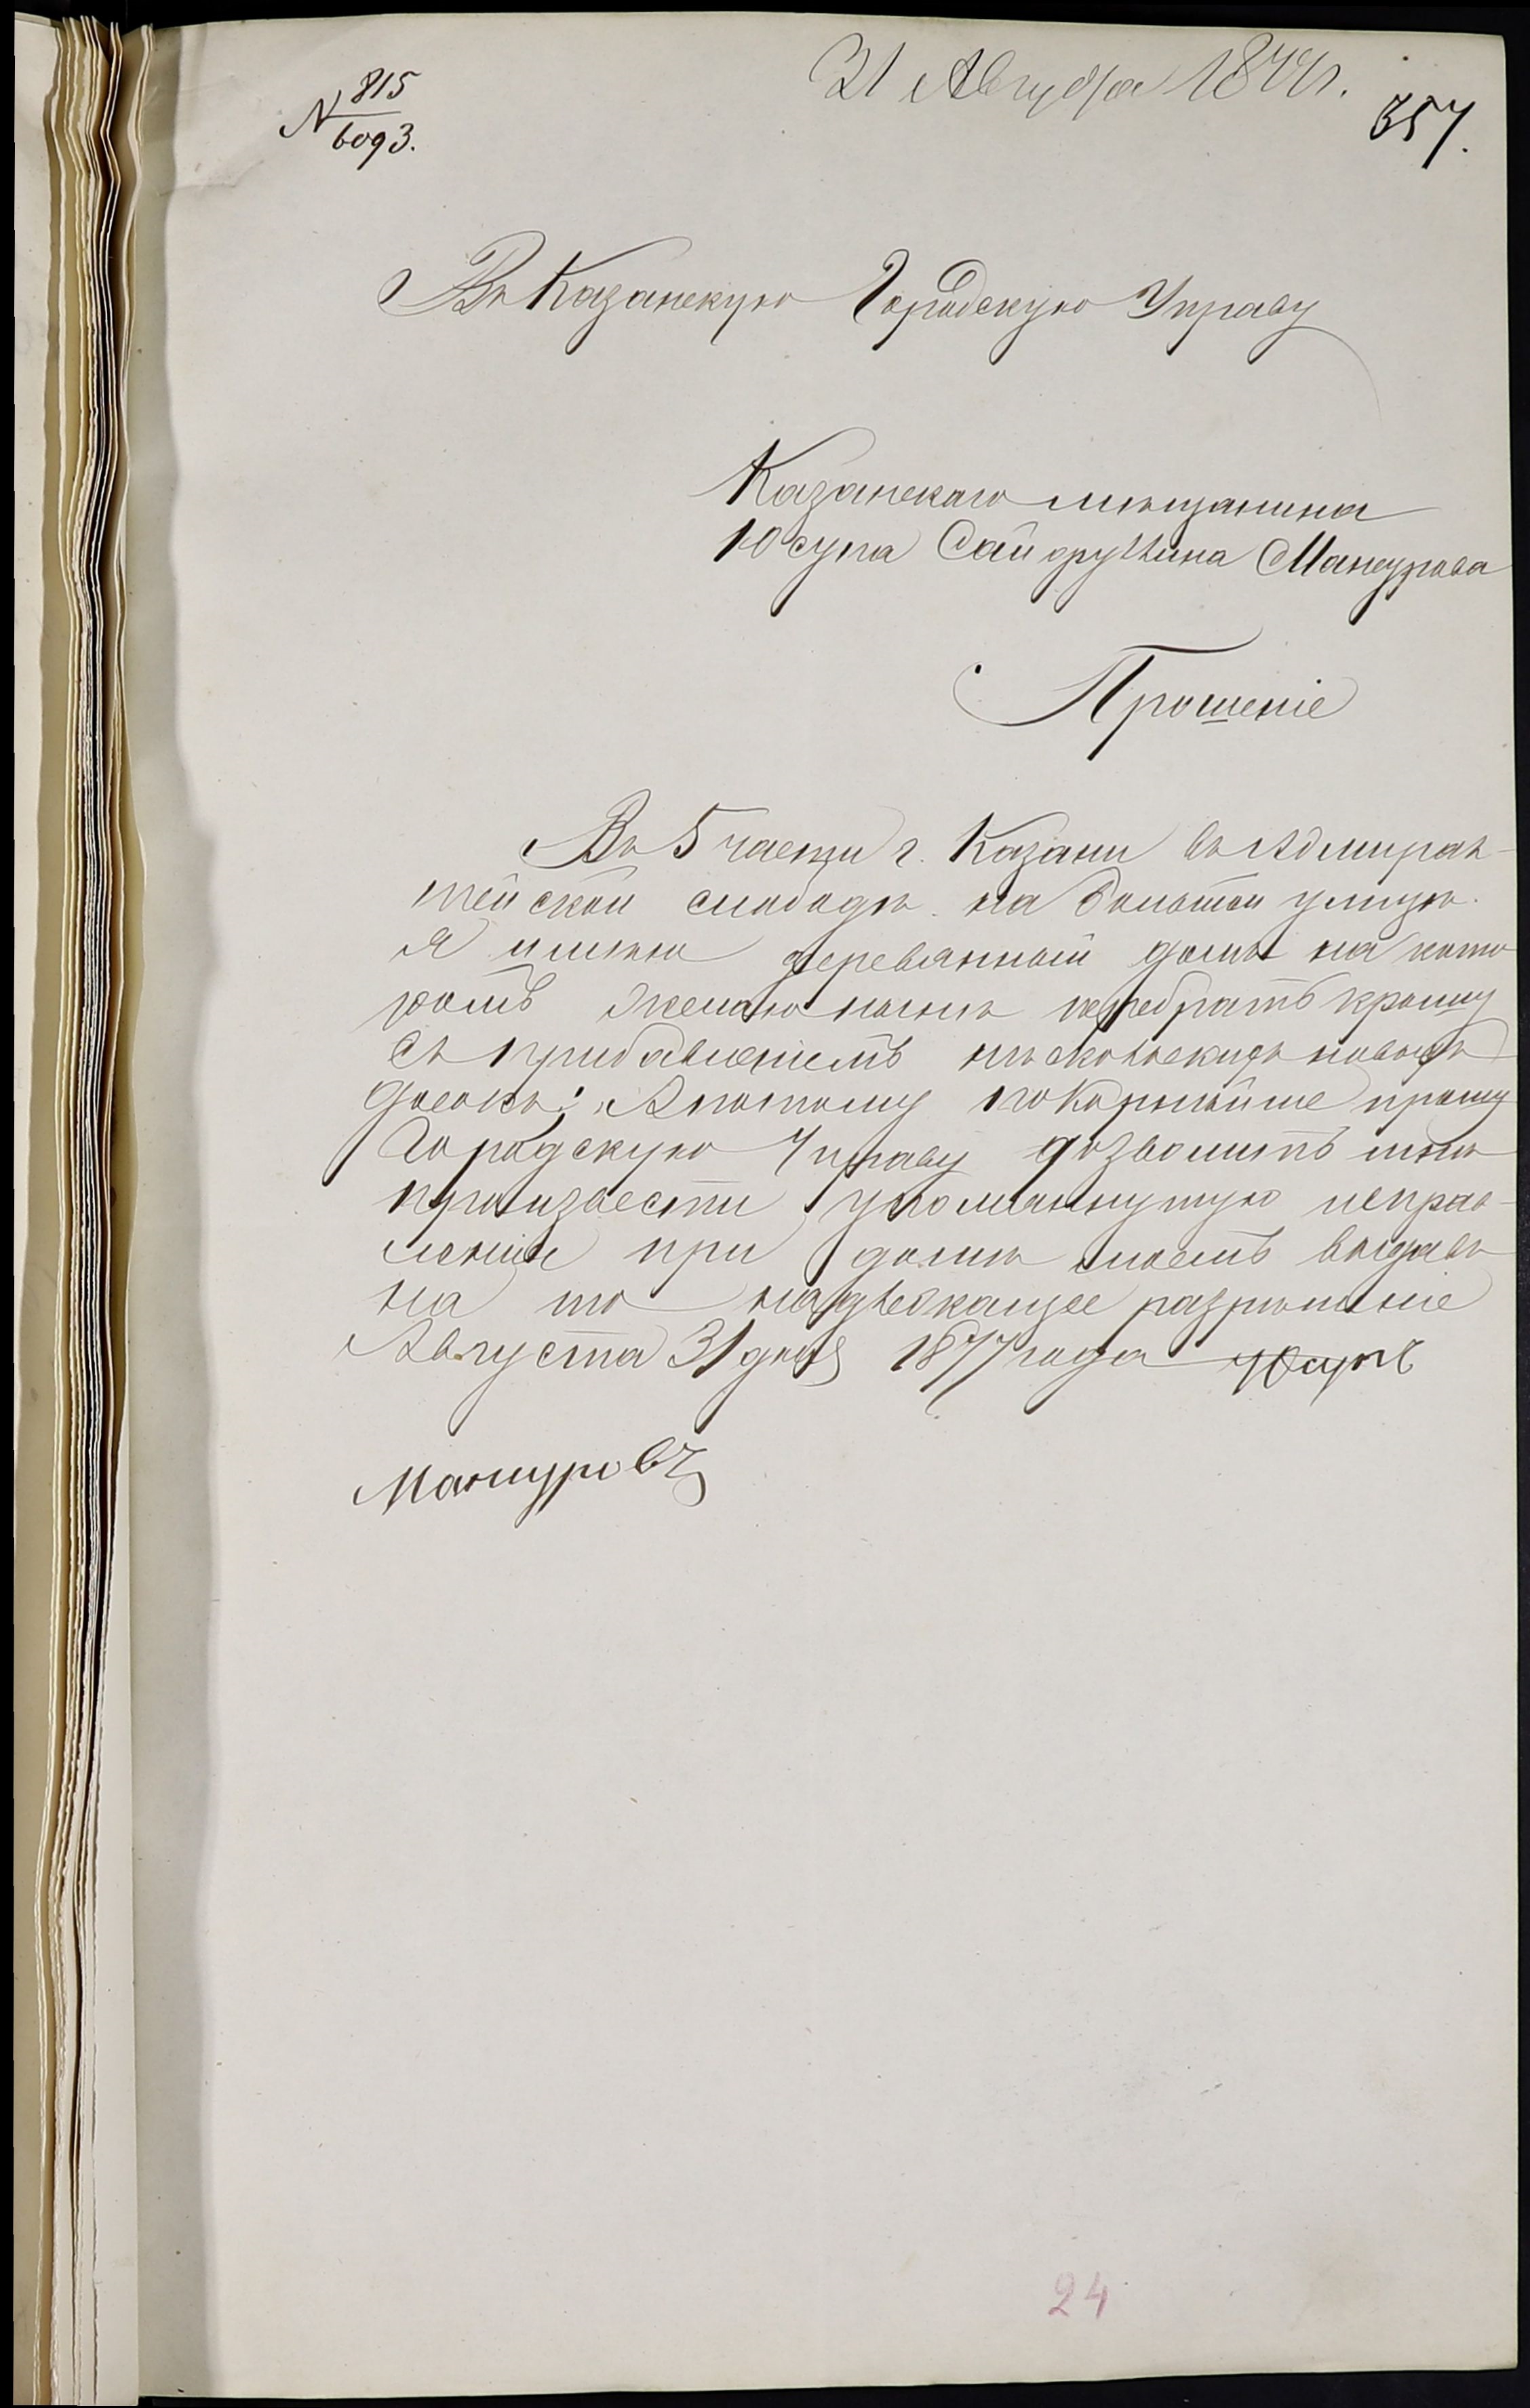 31 Августа 1877 г.
№ 815
6093.
357.
Въ Казанскую Городскую Управу
Казанскаго мѣщанина
Юсупа Сайфутдина Мансурова
Прошеніе
Въ 5 части г. Казани въ Адмирал-
тейской слободѣ на большой улицѣ.
Я имѣю деревянный домъ на кото
ромъ желаю нынѣ перебрать крышу
съ прибавленіемъ нѣсколькихъ новыхъ
досокъ; А потому покорнѣйше прошу
Городскую Управу дозволить мнѣ
произвести упомянутую исправ-
ленія при домѣ моемъ выдавъ
на то надлежащее разрѣшеніе
Августа 31 дня 1877 года Юсупъ
Мансуровъ
24